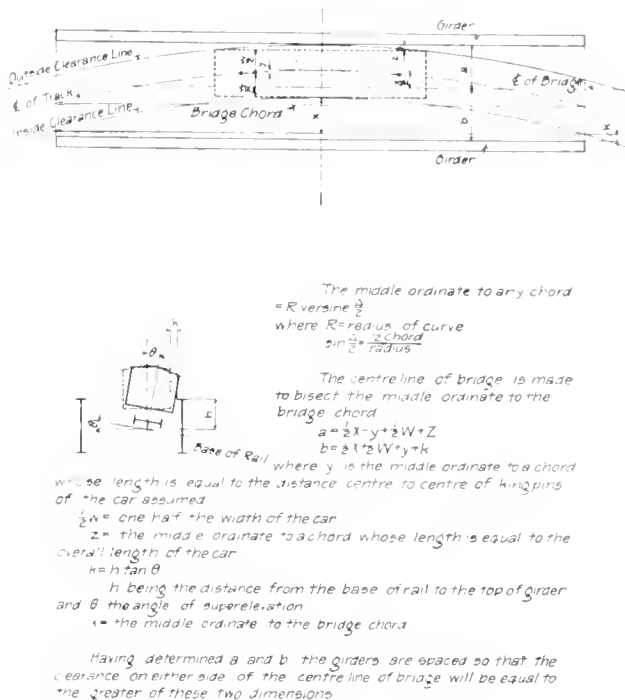 Girder
Outside Clearance Line
℄ of Track
Inside Clearance Line
Bridge Chord
℄ of Bridge
Girder
The middle ordinate to any chord
= R versine Δ/2
where R = radius of curve
sin Δ/2 = ½ chord / radius
The centre line of bridge is made
to bisect the middle ordinate to the
bridge chord
a = ½X - y + ½W + Z
b = ½X + ½W + y + k
Base of Rail
where y is the middle ordinate to a chord
whose length is equal to the distance centre to centre of kingpins
of the car assumed
½W = one half the width of the car
Z = the middle ordinate to a chord whose length is equal to the
overall length of the car
k = h tan θ
h being the distance from the base of rail to the top of girder
and θ the angle of superelevation
x = the middle ordinate to the bridge chord
Having determined a and b the girders are spaced so that the
clearance on either side of the centre line of bridge will be equal to
the greater of these two dimensions